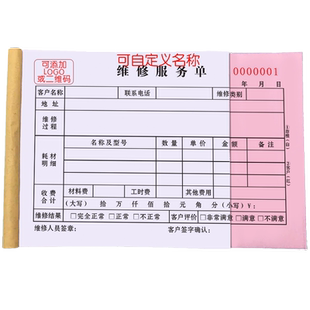 可添加
LOGO
或二维码
可自定义名称
维修服务单
0000001
年 月 日
客户名称 联系电话 维修类别
地址
维修
过程
耗材
明细
名称及型号 数量 单价 金额 备注
收费
合计
材料费 工时费 其他费用
(大写) 拾 万 仟 佰 拾 元 角 分 (小写) ¥:
维修结果 □完全正常 □正常 □不正常 客户评价 □非常满意 □满意 □不满意
维修人员签章: 客户签字确认: